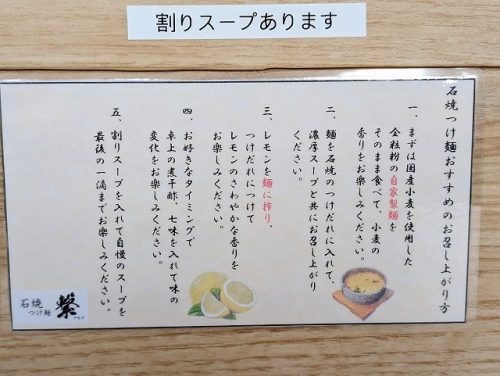 割りスープあります
石焼つけ麺おすすめのお召し上がり方
一、まずは国産小麦を使用した
全粒粉の自家製麺を
そのまま食べて、小麦の
香りをお楽しみください。
二、麺を石焼のつけだれに入れて、
濃厚スープと共にお召し上がり
ください。
三、レモンを麺に搾り、
つけだれにつけて
レモンのさわやかな香りを
お楽しみください。
四、お好きなタイミングで
卓上の煮干酢、七味を入れて味の
変化をお楽しみください。
五、割りスープを入れて自慢のスープを
最後の一滴までお楽しみください。
石焼
つけ麺
繋